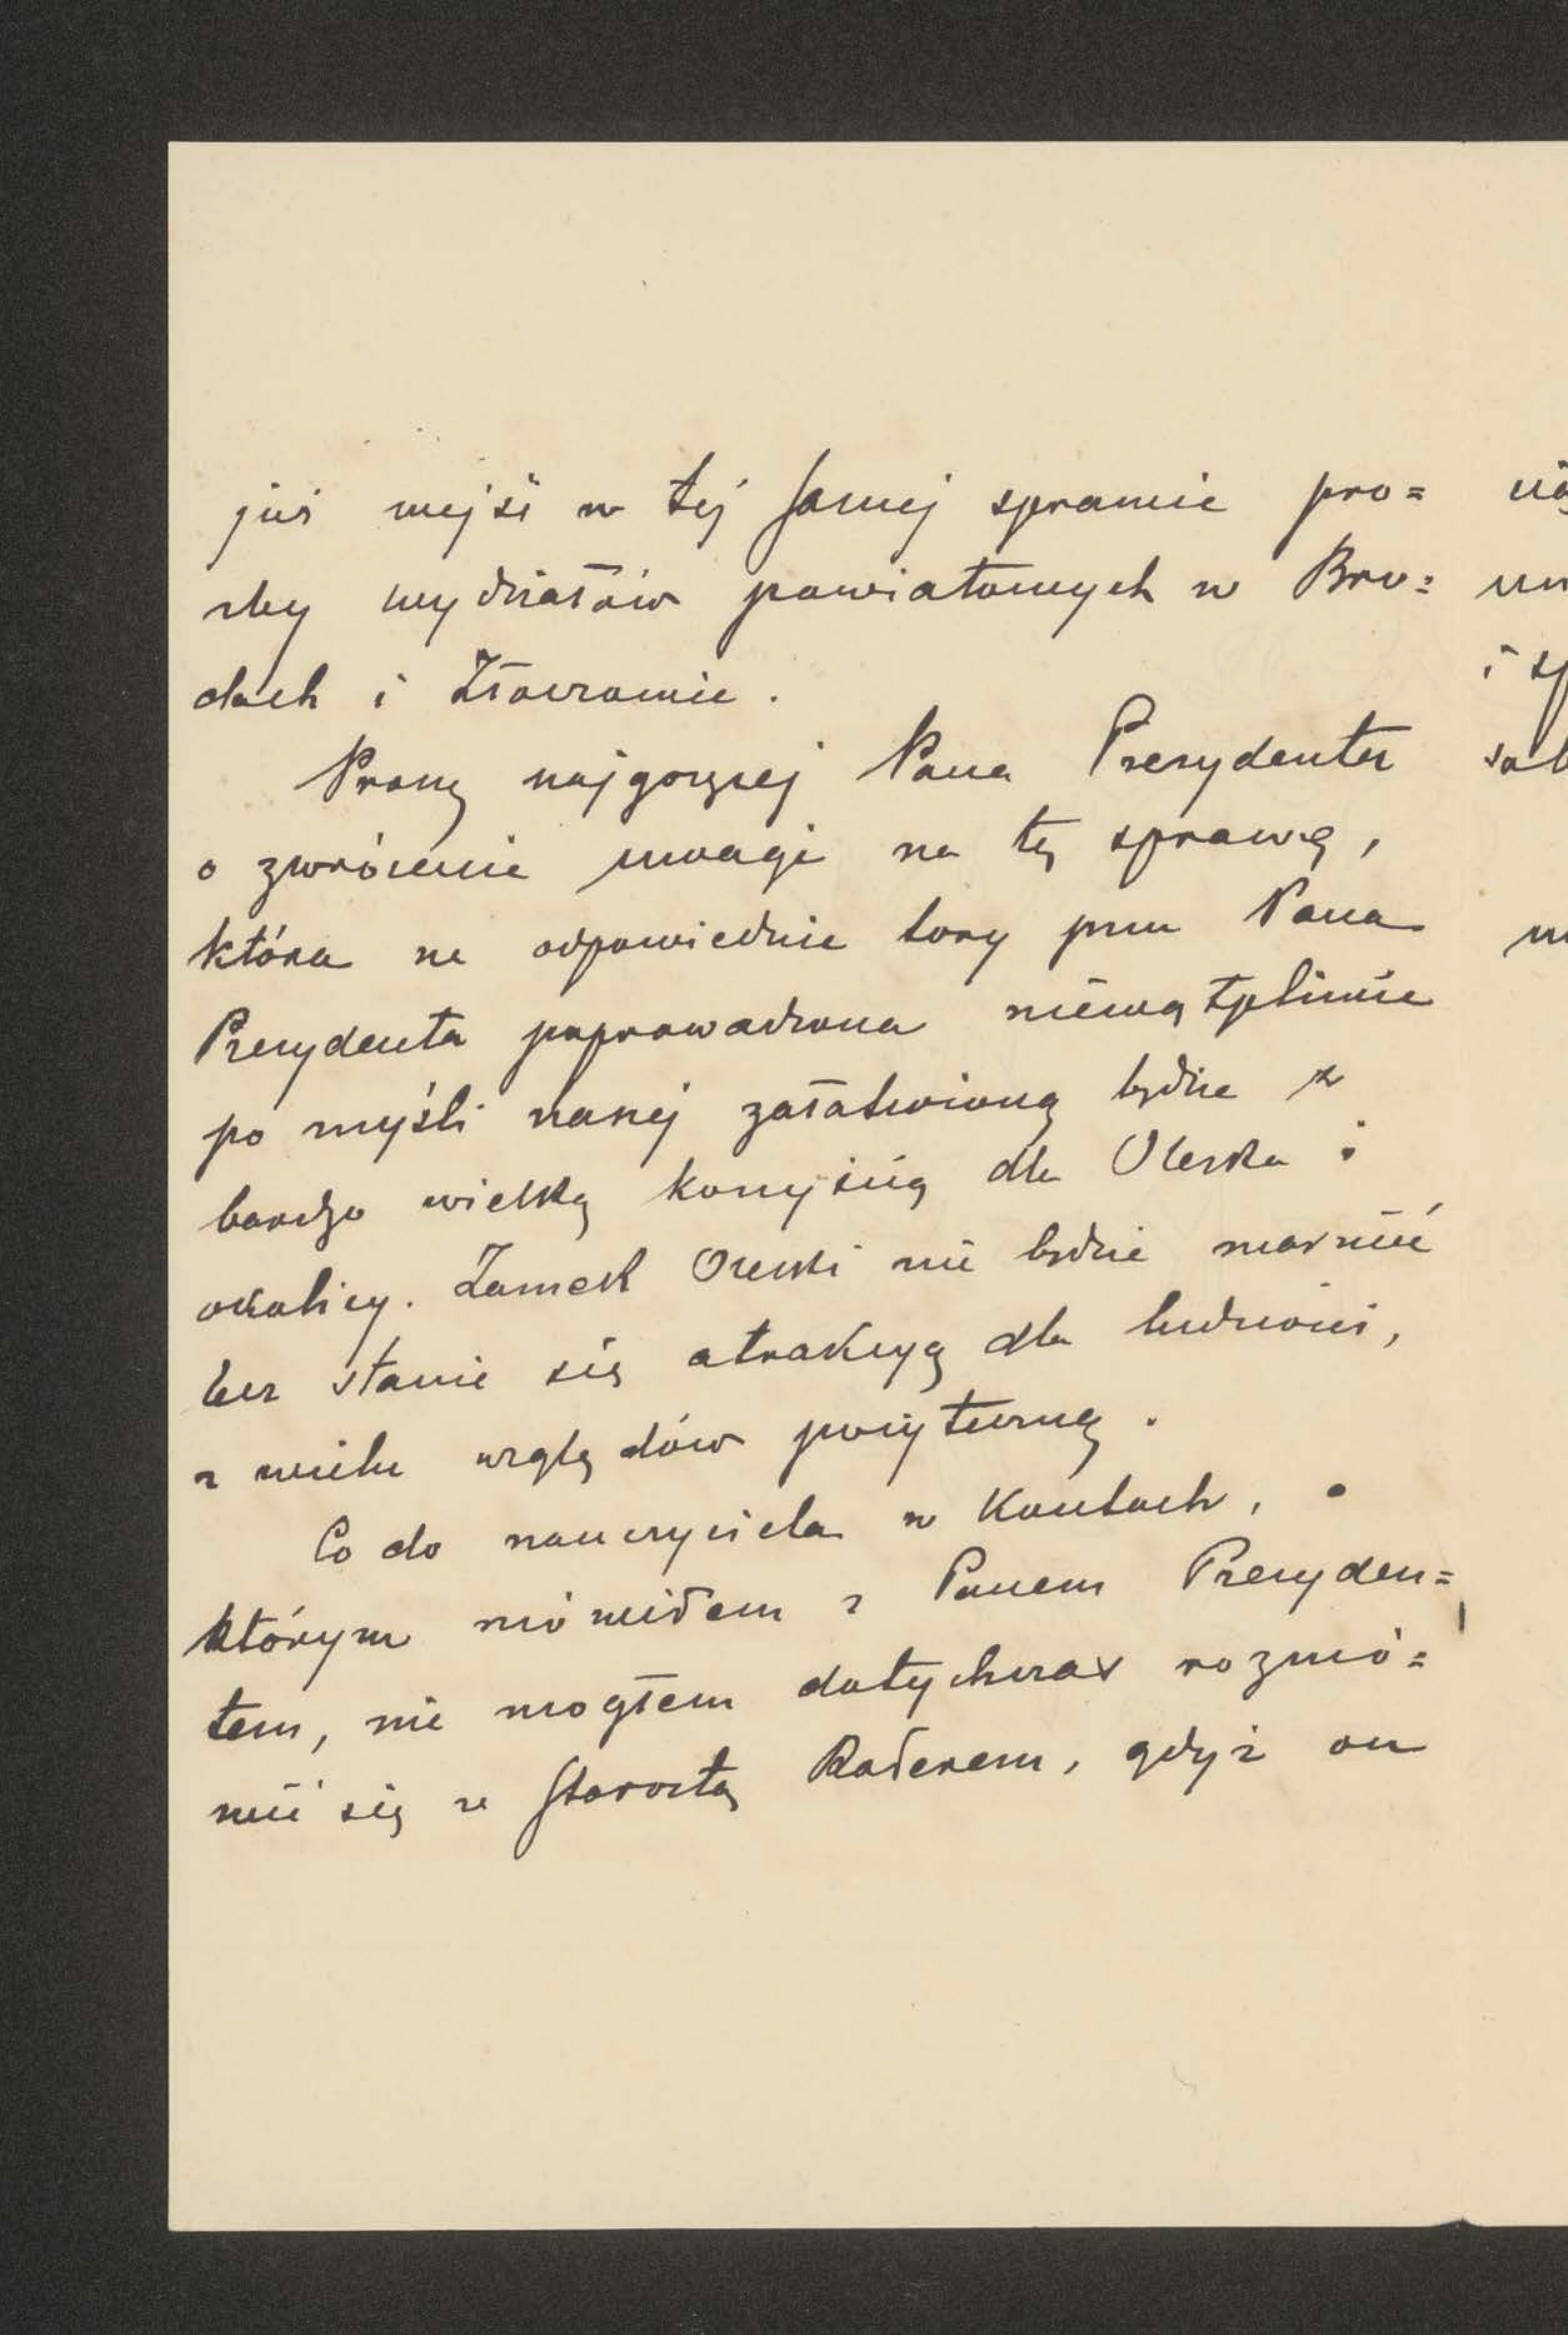 już wejść w tej samej sprawie pro=
śby wydziałów powiatowych w Bro=
dach i Złoczowie.
Proszę najgoręcej Pana Prezydenta
o zwrócenie uwagi na tę sprawę,
która na odpowiednie tory przez Pana
Prezydenta poprowadzona niewątpliwie
po myśli naszej załatwioną będzie z
bardzo wielką korzyścią dla Oleska i
okolicy. Zamek Oleski nie będzie marnieć
lecz stanie się atrakcyą dla ludności,
z wielu względów pożyteczną.
Co do nauczyciela w Kontach, o
którym mówiłem z Panem Prezyden=
tem, nie mogłem dotychczas rozmó=
wić się ze Starostą Raderem, gdyż on